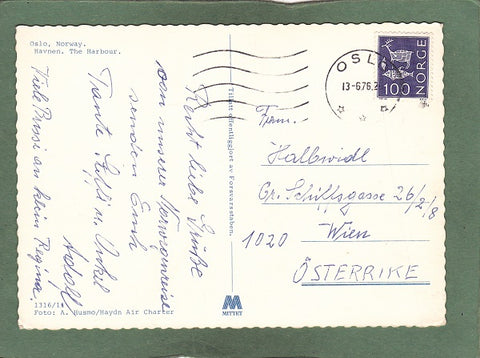 Oslo, Norway.
Havnen. The Harbour.
Recht liebe Grüße
von unserer Norwegenreise
senden Euch
Tante Steffi u. Onkel
Adolf
Viele Bussi an klein Regina.
1316/14
Foto: A. Husmo/Haydn Air Charter
Tillatt offentliggjort av Forsvarsstaben.
MITTET
OSLO
13-6.76.
NORGE
100
Fam.
Halbwidl
Gr. Schiffgasse 26/2/8
1020 Wien
ÖSTERRIKE